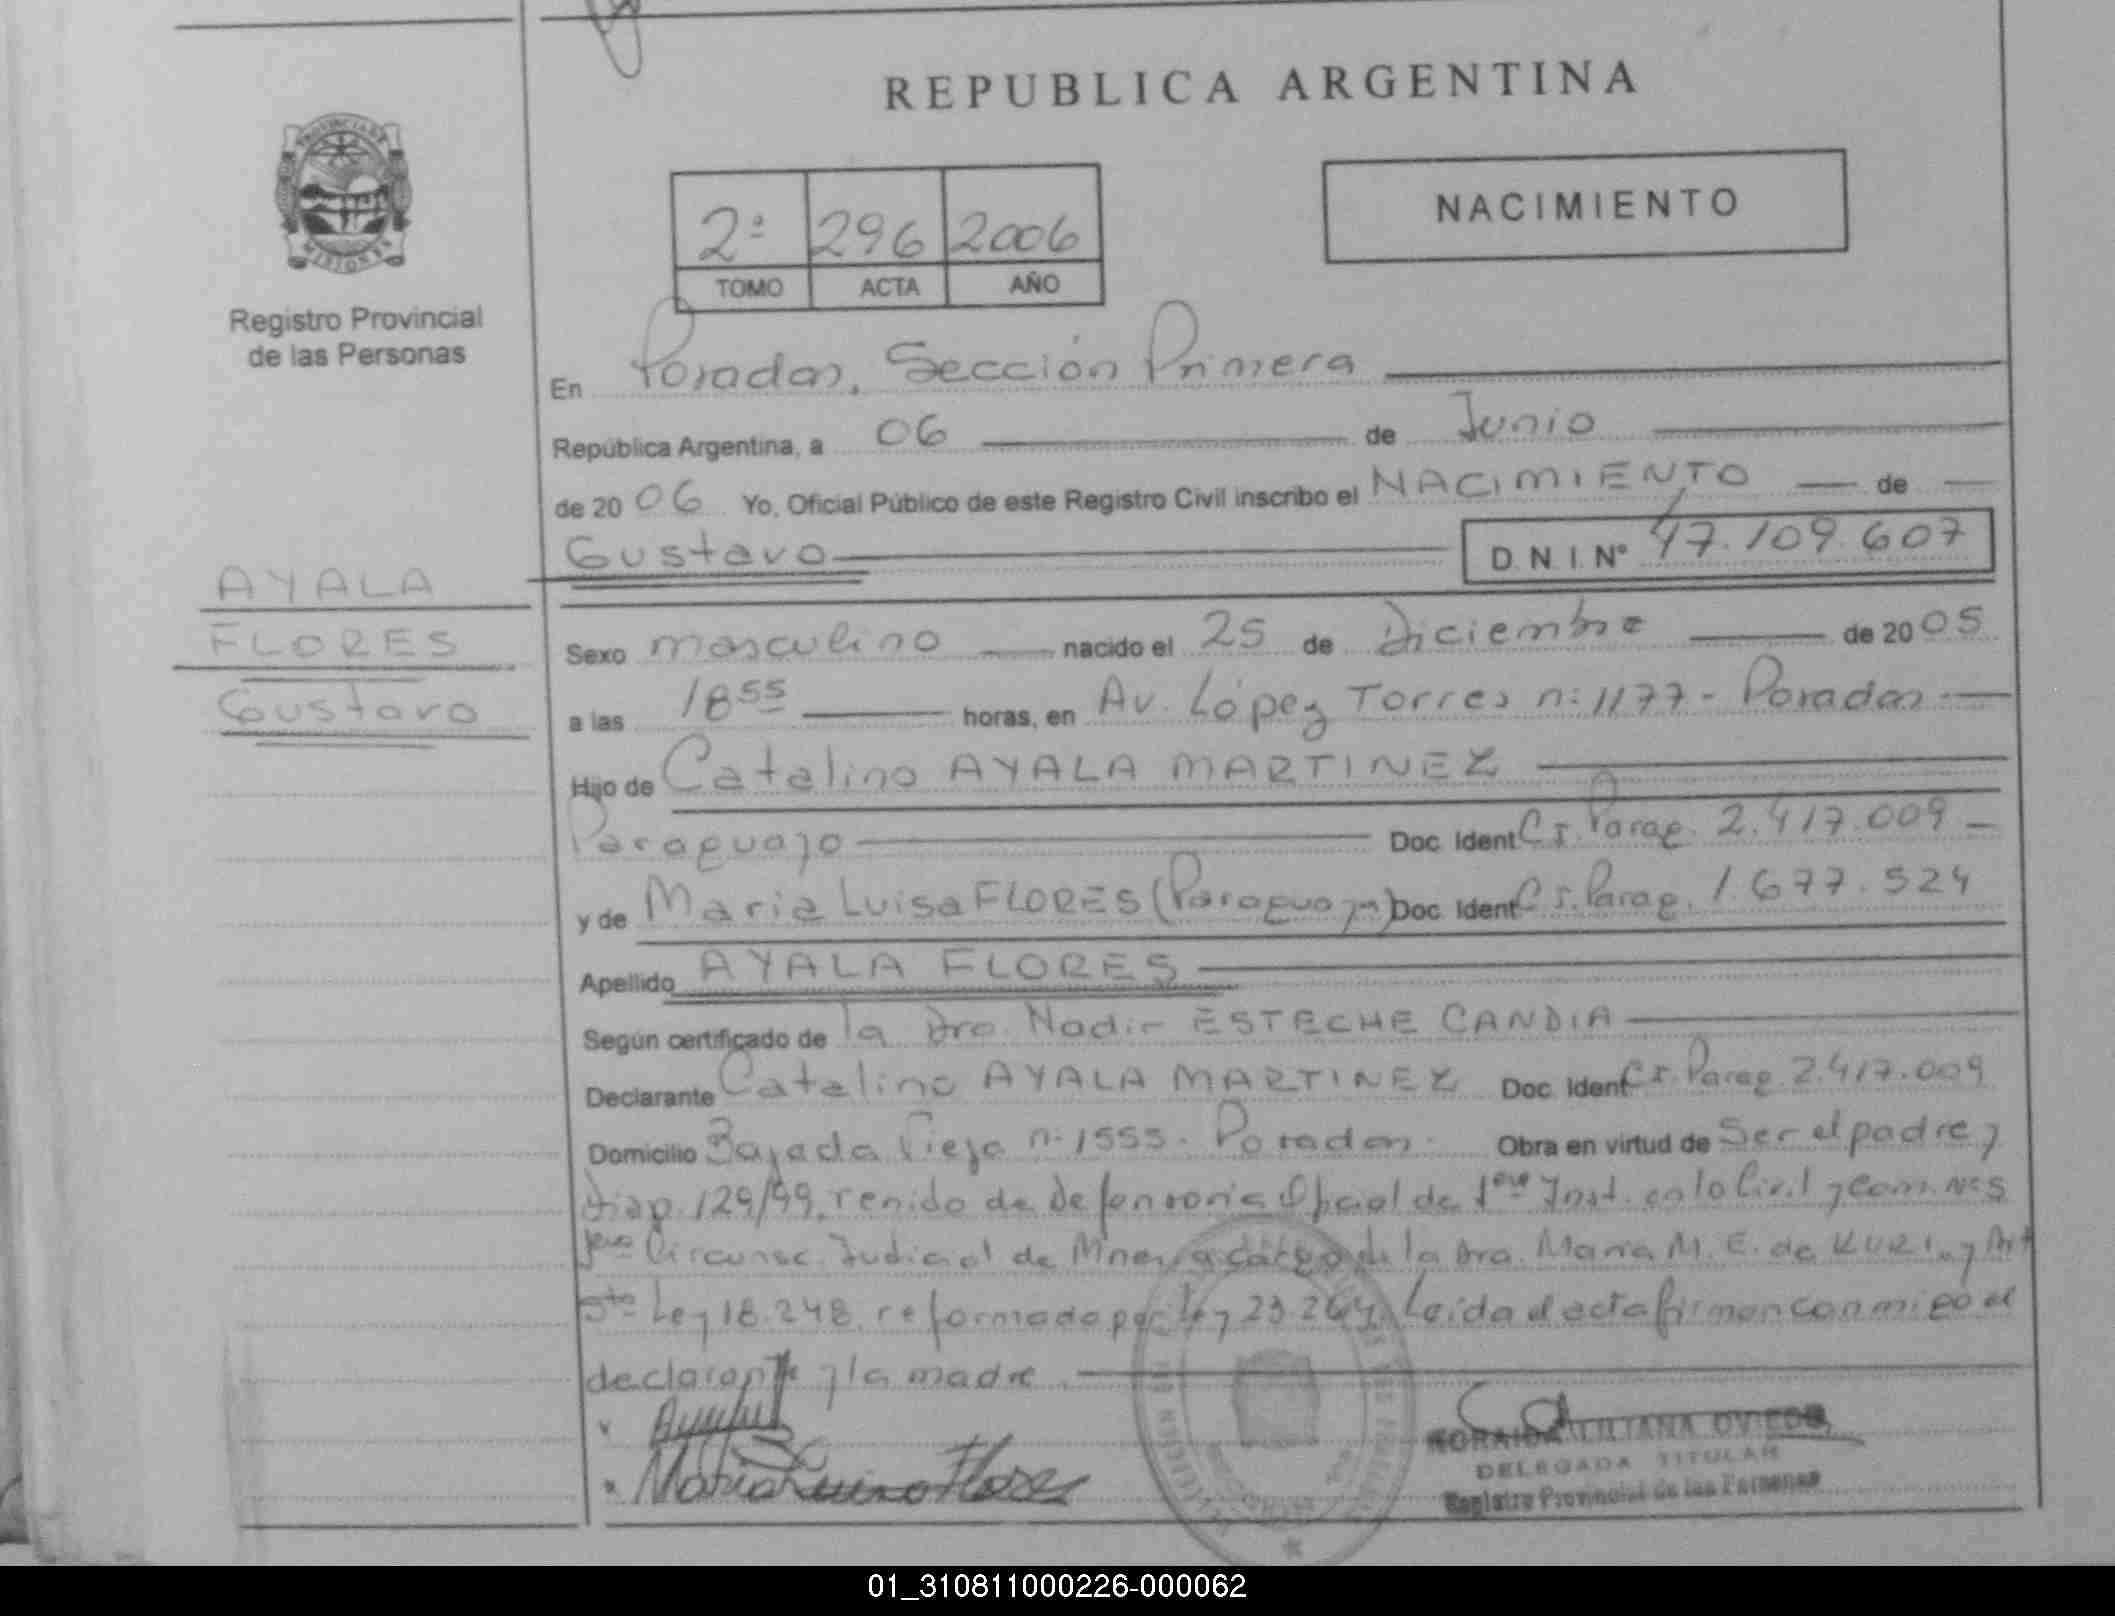 REPUBLICA ARGENTINA
PROVINCIA DE
MISIONES
Registro Provincial
de las Personas
2ª 296 2006
TOMO ACTA AÑO
NACIMIENTO
En Posadas, Sección Primera
República Argentina, a 06 de Junio
de 2006 Yo, Oficial Público de este Registro Civil inscribo el NACIMIENTO de
Gustavo D.N.I. Nº 47.109.607
AYALA
FLORES
Gustavo
Sexo masculino nacido el 25 de Diciembre de 2005
a las 18 55 horas, en Av. López Torres nº 1177 - Posadas
Hijo de Catalino AYALA MARTINEZ
Paraguayo Doc. Ident C.I. Parag. 2.417.009
y de Maria Luisa FLORES (Paraguaya) Doc. Ident C.I. Parag. 1.677.524
Apellido AYALA FLORES
Según certificado de la Dra. Nadir ESTECHE CANDIA
Declarante Catalino AYALA MARTINEZ Doc. Ident C.I. Parag. 2.417.009
Domicilio Bajada Vieja nº 1555. Posadas. Obra en virtud de Ser el padre y
Disp. 129/99, venido de Defensoria Oficial de 1era Inst. en lo Civil y Com. Nº5
1era Circunsc. Judicial de Mnes, a cargo de la Dra. Maria M. E. de KURI, y Art
5to Ley 18.248, reformado por ley 23.264. Leída el acta firman conmigo el
declarante y la madre.
Maria Flores
LILIANA OVIEDO
DELEGADA TITULAR
Registro Provincial de las Personas
01_310811000226-000062